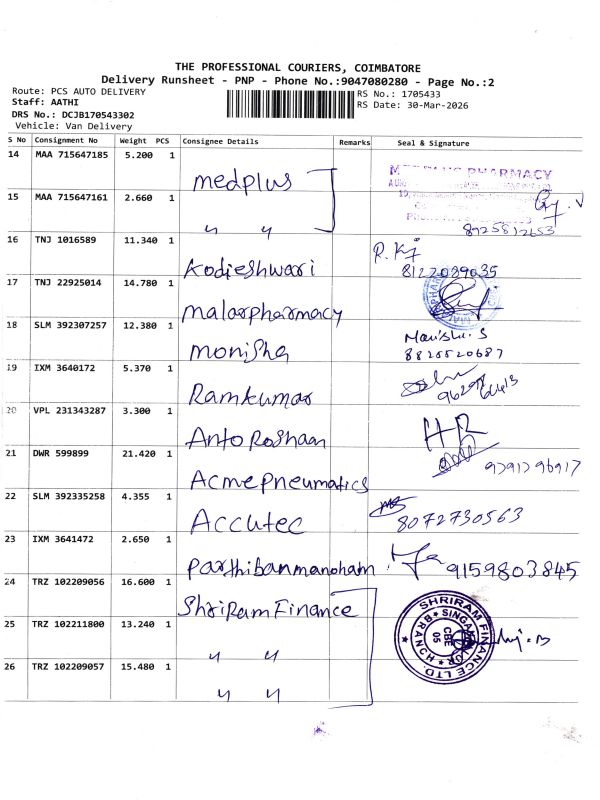 THE PROFESSIONAL COURIERS, COIMBATORE
Delivery Runsheet - PNP - Phone No.:9047080280 - Page No.:2
Route: PCS AUTO DELIVERY
Staff: AATHI
DRS No.: DCJB170543302
Vehicle: Van Delivery
RS No.: 1705433
RS Date: 30-Mar-2026
S No Consignment No Weight PCS Consignee Details Remarks Seal & Signature
14 MAA 715647185 5.200 1 medplus PHARMACY
15 MAA 715647161 2.660 1 〃 〃 8925812653
16 TNJ 1016589 11.340 1 Kodieshwari 8122039035
17 TNJ 22925014 14.780 1 malarpharmacy
18 SLM 392307257 12.380 1 monisha Monisha. S 8825520687
19 IXM 3640172 5.370 1 Ramkumar
20 VPL 231343287 3.300 1 Anto Roshaan
21 DWR 599899 21.420 1 Acmepneumatics 9791296917
22 SLM 392335258 4.355 1 Accutec 8072730563
23 IXM 3641472 2.650 1 parthibanmanoham 9159803845
24 TRZ 102209056 16.600 1 ShriRam Finance
25 TRZ 102211800 13.240 1 〃 〃 SHRIRAM FINANCE LTD. SINGANALLUR BRANCH CBE 05
26 TRZ 102209057 15.480 1 〃 〃